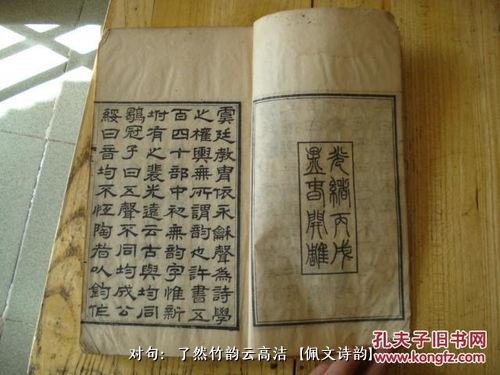 光緒丙戌
孟春開雕
虞廷敎冑依永龢聲爲詩學
之權輿無所謂韵也許書五
百四十部中初無韵字惟新
坿有之裴光遠云古與均同
鶡冠子曰五聲不同均成公
綏曰音均不恆陶者以鈞作
对句：了然竹韵云高洁【佩文诗韵】
孔夫子旧书网
www.kongfz.com